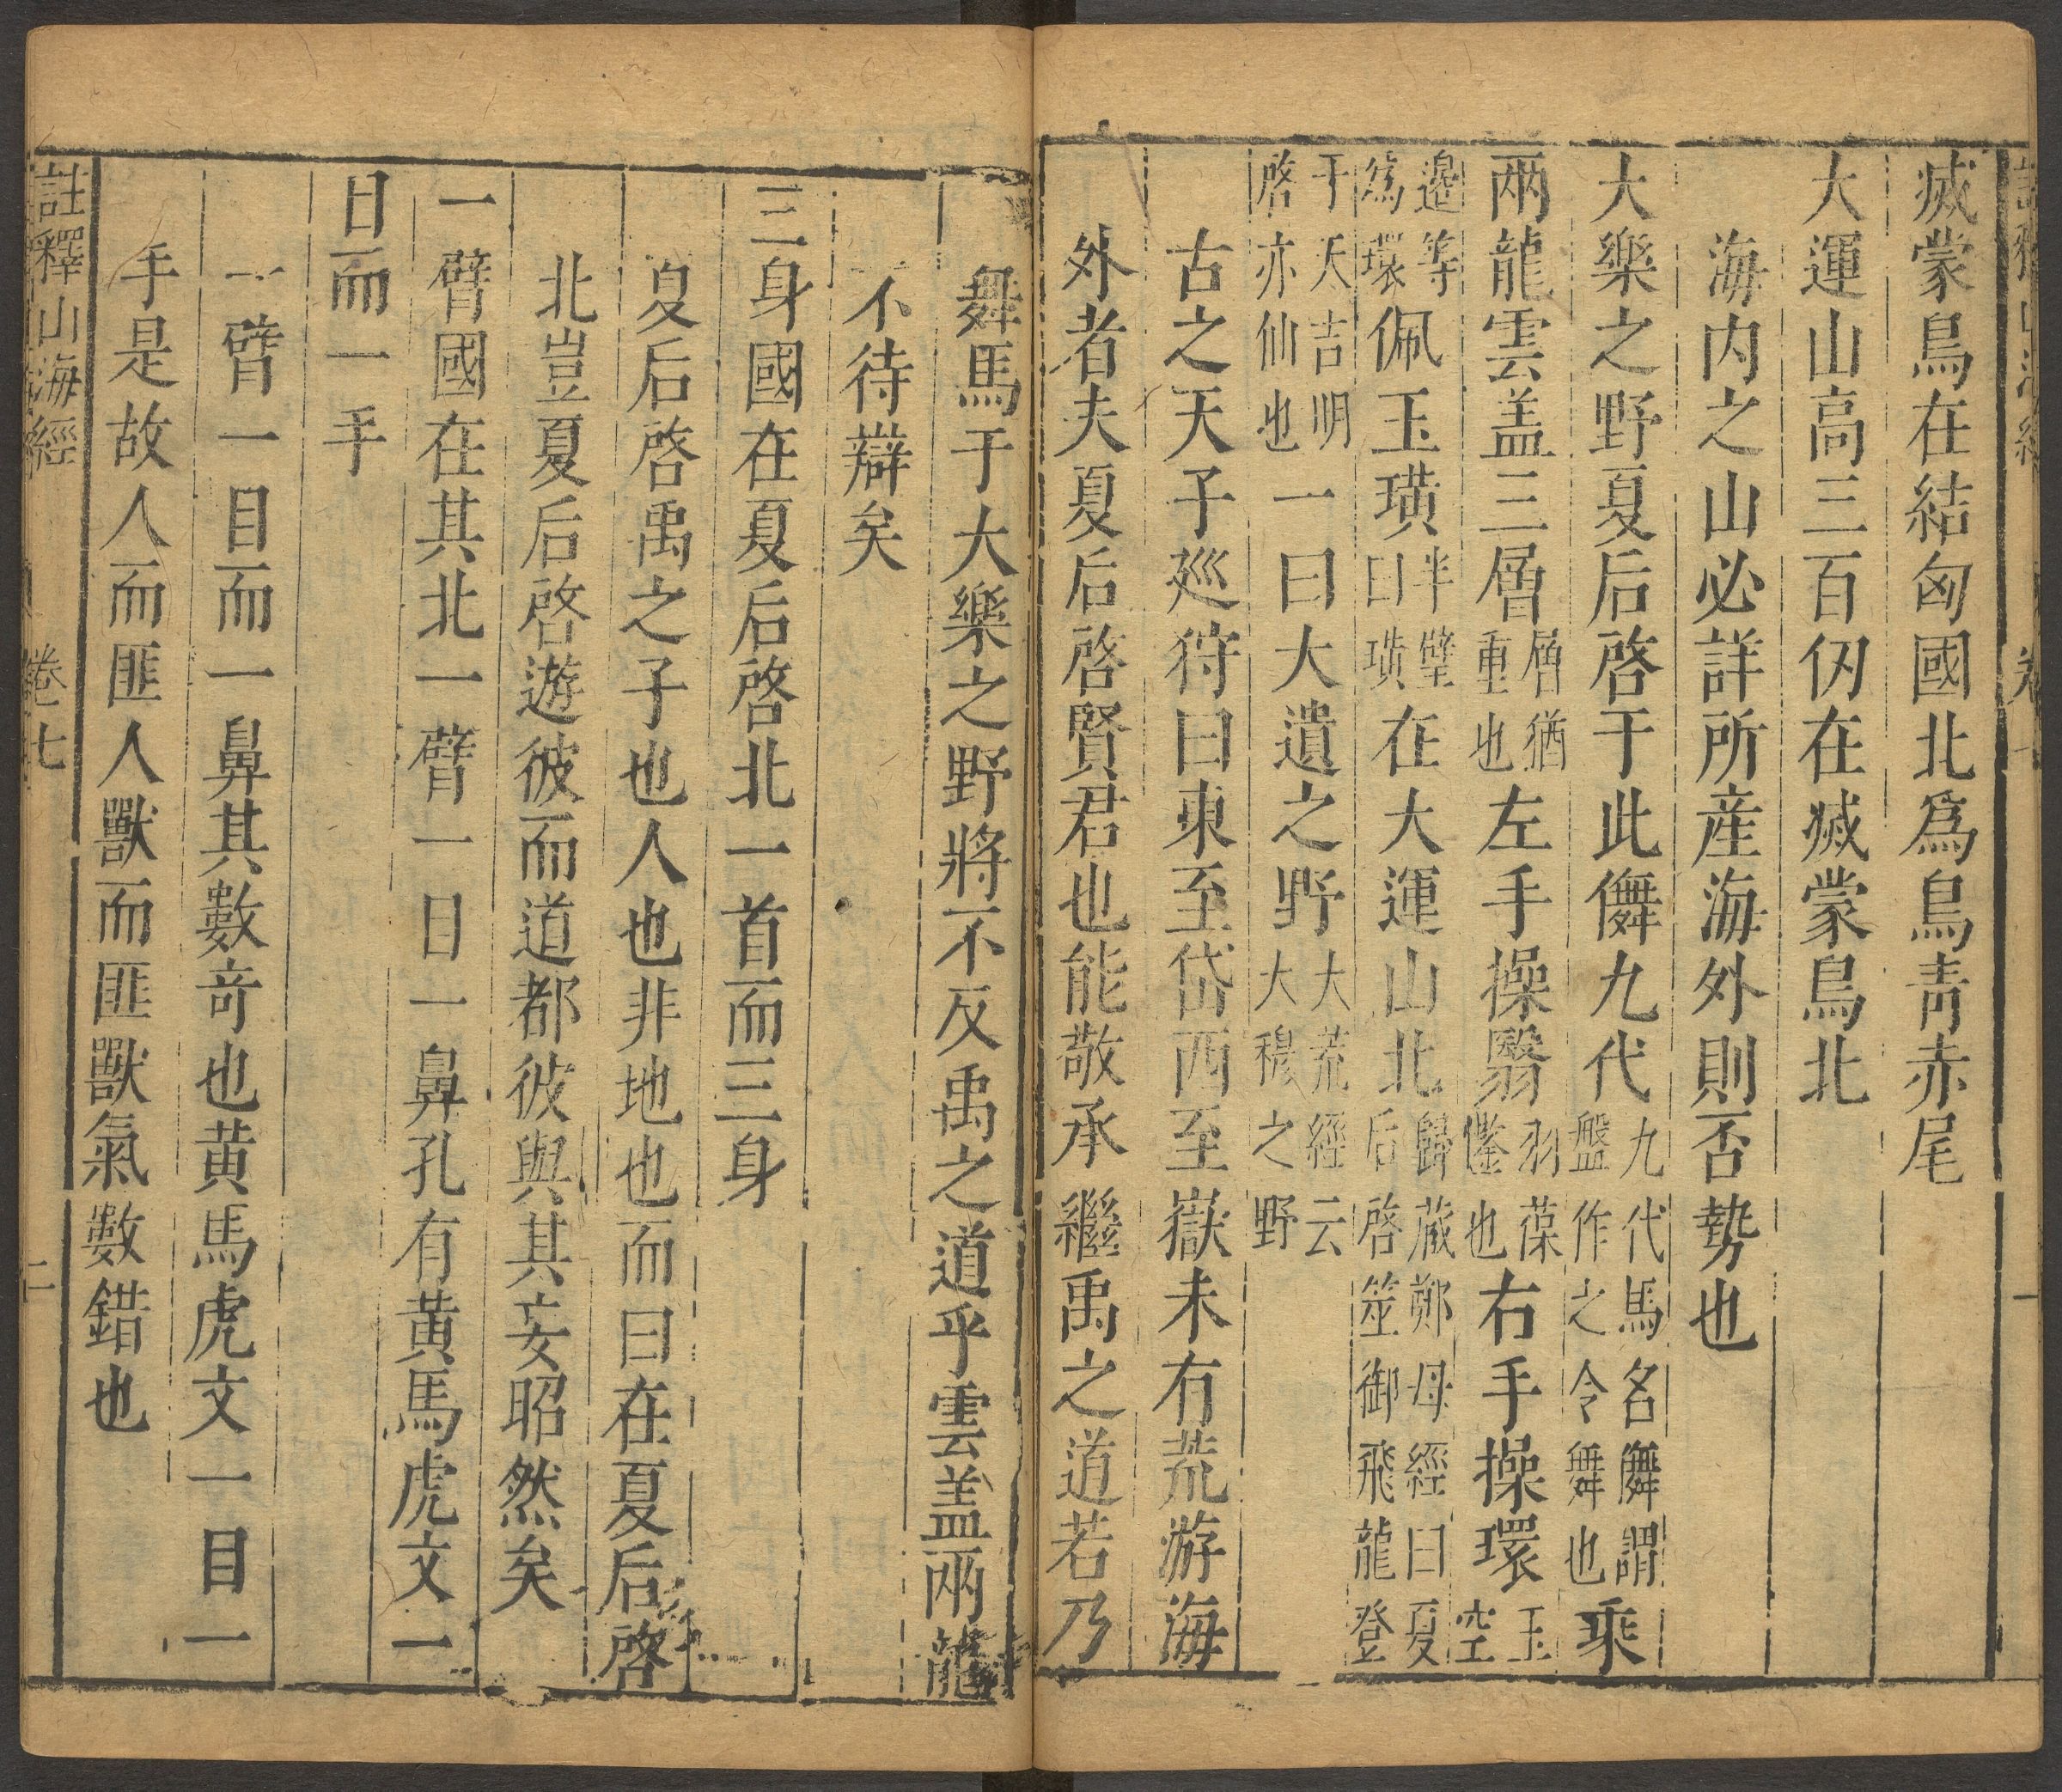 滅蒙鳥在結匈國北爲鳥青赤尾
大運山高三百仞在滅蒙鳥北
海内之山必詳所産海外則否勢也
大樂之野夏后啓于此儛九代九代馬名儛謂盤作之令舞也乘
兩龍雲盖三層層猶重也左手操翳羽葆幢也右手操環玉空
邊等爲環佩玉璜半璧曰璜在大運山北歸藏鄭母經曰夏后啓筮御飛龍登
于天吉明啓亦仙也一曰大遺之野大荒經云大穆之野
古之天子廵狩曰東至岱西至嶽未有荒游海
外者夫夏后啓賢君也能敬承繼禹之道若乃
舞馬于大樂之野將不反禹之道乎雲盖兩龍
不待辯矣
三身國在夏后啓北一首而三身
夏后啓禹之子也人也非地也而曰在夏后啓
北豈夏后啓遊彼而道都彼與其妄昭然矣
一臂國在其北一臂一目一鼻孔有黄馬虎文一
目而一手
一臂一目而一鼻其數奇也黄馬虎文一目一
手是故人而匪人獸而匪獸氣數錯也
註釋山海經 卷七 二